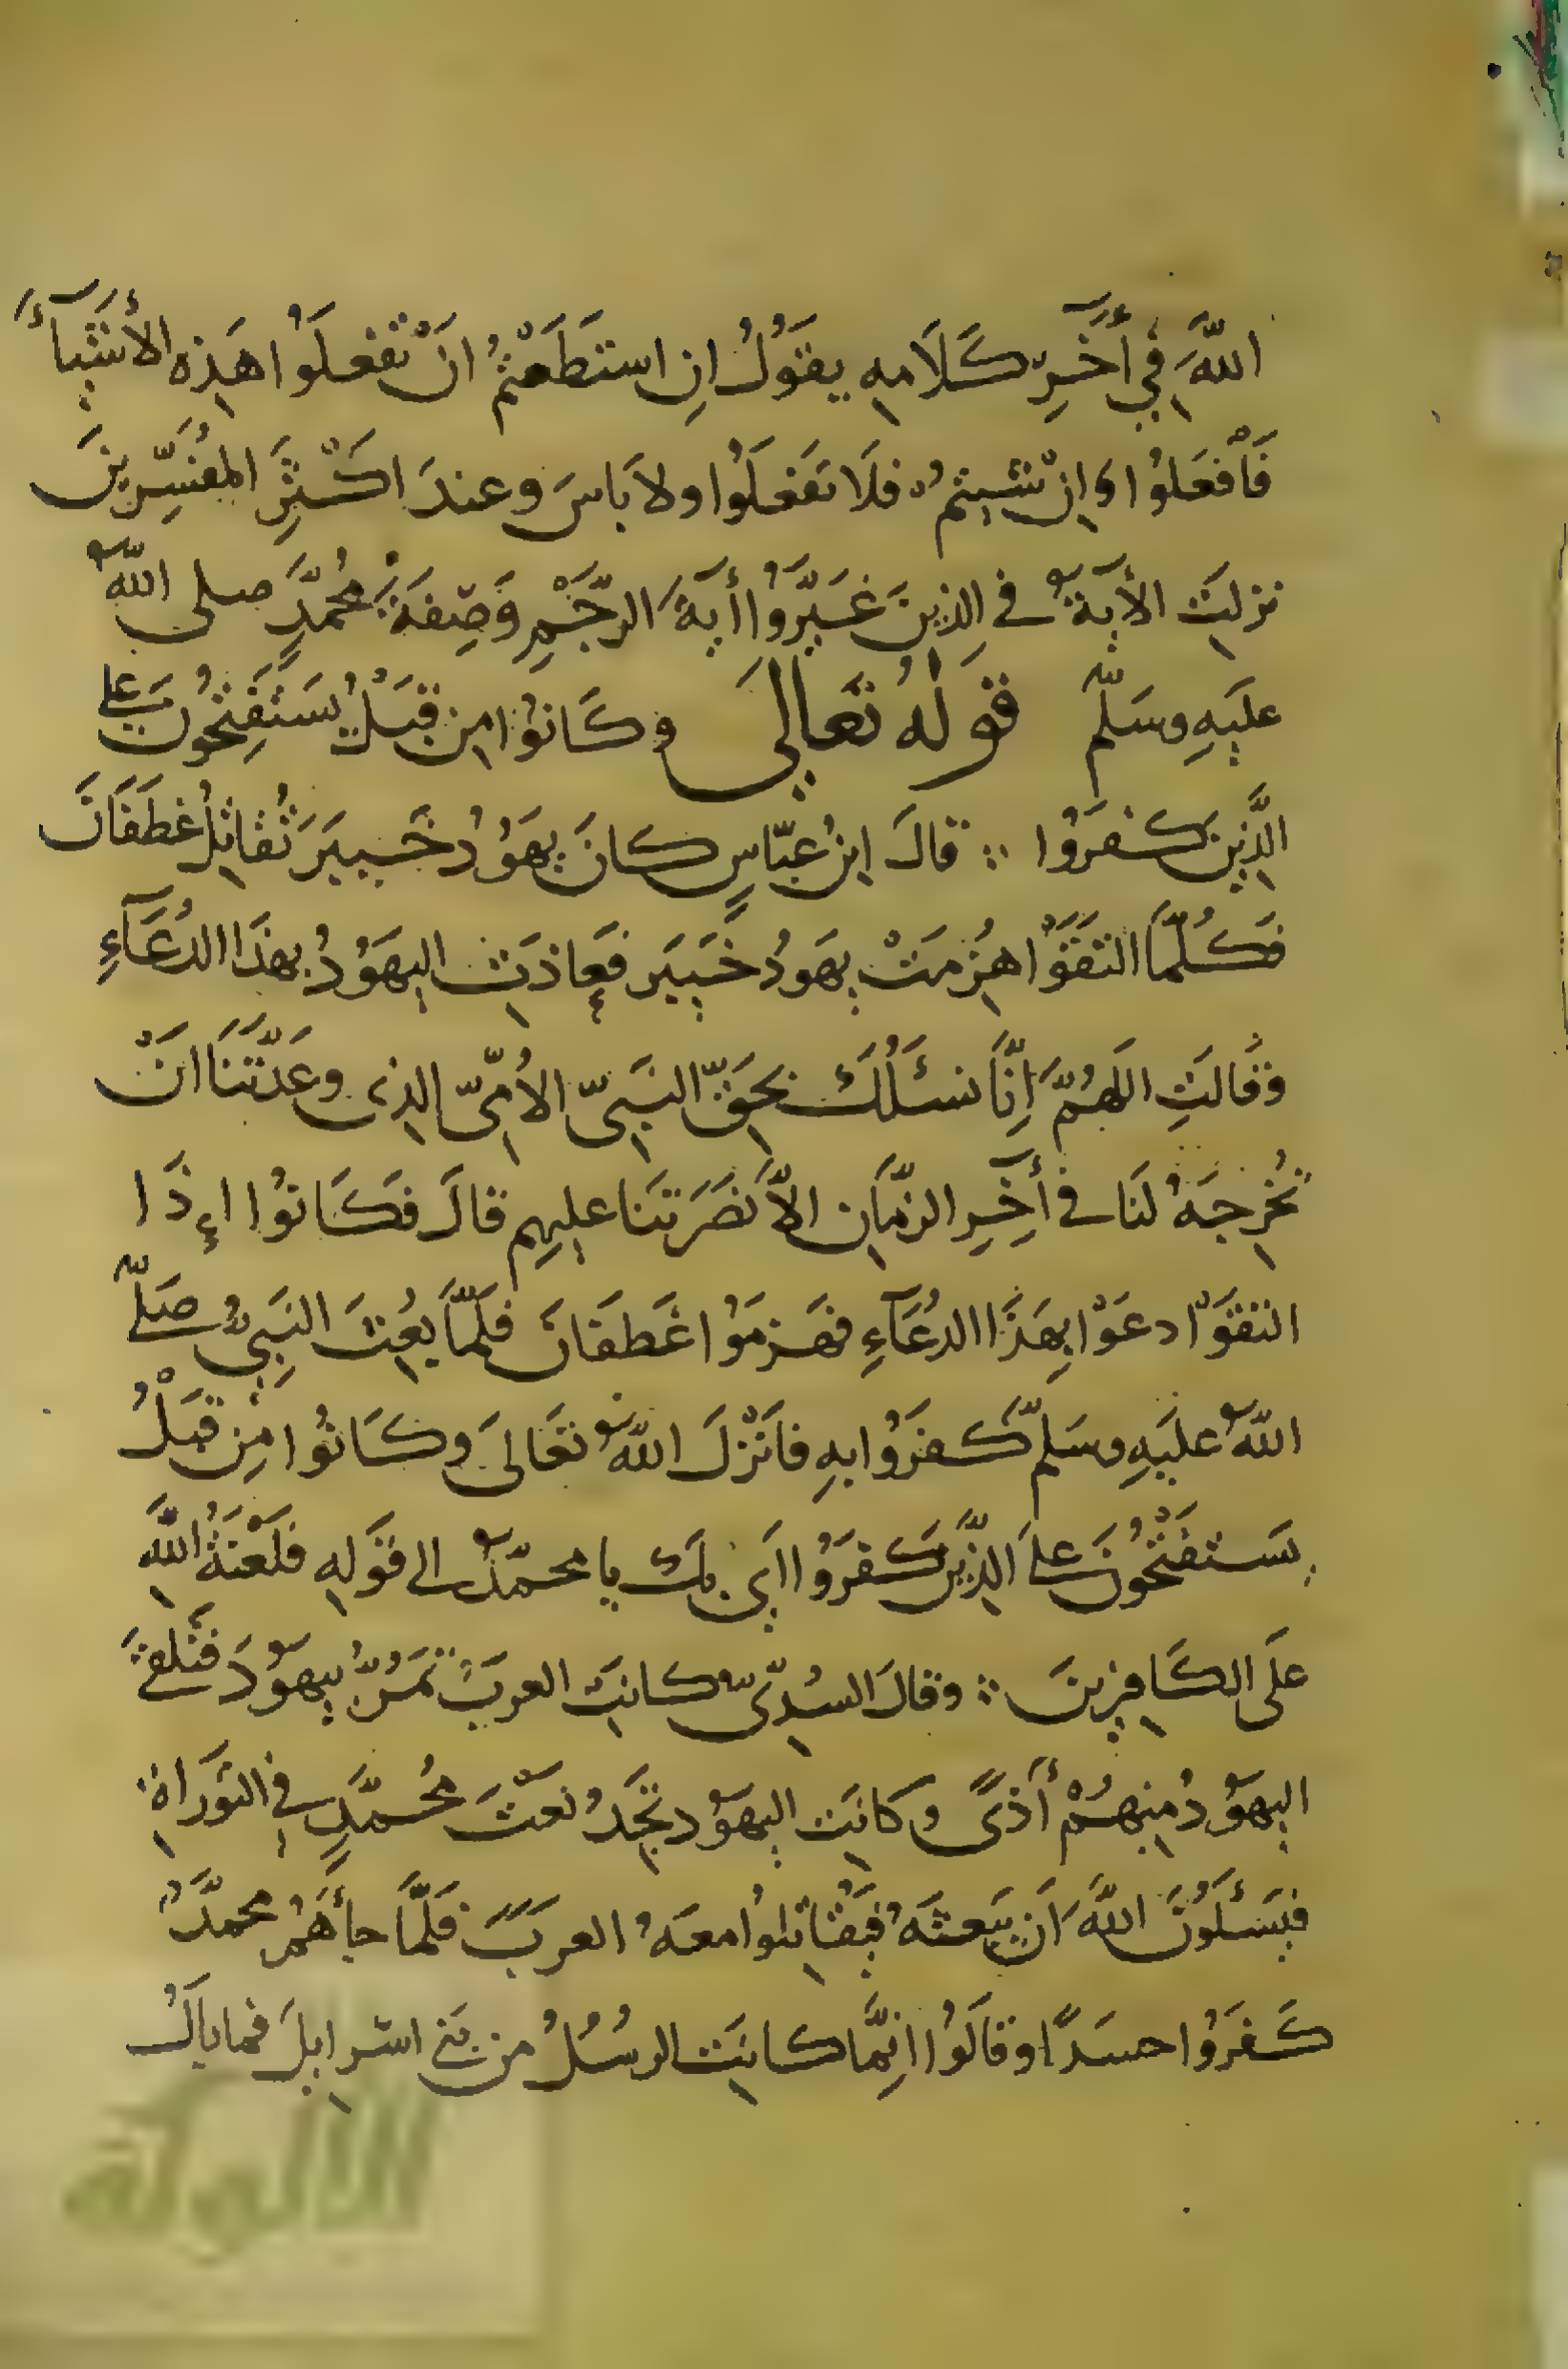 اللَّهَ فِي أَخِرِ كَلَامِهِ يقُوْلُ اِنِ استَطَعْتُمْ انْ تفعلُوْا هَذِهِ الأشْيَآءَ
فَأفْعَلُوْا وَاِنْ شيتمْ فلَا تَفعَلُوا ولَا بَاسَ وعندَ اكْثَرِ المفسِّرِينَ
نزلِتْ الأيَةُ في الذِينَ غَيَّرُوْا أيةَ الرَّجْمِ وَصِفَةَ مُحمَّدٍ صلى اللّٰهُ
عليَهِ وسَلّم قوله تعَالى وكَانوُا مِن قبْلُ يَستَفتِحُونَ عَلى
الَّذِينَ كفرَوُا قالَ ابْنُ عبّاسٍ كانَ يهَوُدُ خَيبرَ تُقاتِلُ غطَفَانَ
فَكُلَّمَا التقَوْا هزُمَتْ يهَودُ خَيبَر فعَاذَتِ اليهَوُدُ بهذَا الدُعَآءِ
وَقَالَتِ اللهُمَّ إِنَّا نسئَلُكَ بِحقِّ النبَيّ الأمّيّ الذِى وعَدْتَنَا انْ
تُخرِجَهُ لنَا في أخِرِ الزمَّانِ الاَّ نصَرَتنَا عليهِم قالَ فكَانوُا إذَا
التقوْا دعَوْا بِهَذَا الدعَآءِ فهَزمَوُا غَطفَانَ فلَمَّا بُعثَ النَبِيُّ صَلى
اللّٰهُ عليَهِ وسَلمّ كفرَوُا بهِ فأنْزلَ اللّٰهُ تعَالىَ وكَانوُا مِن قبْلُ
يَستفتحُونَ عَلىَ الذَّينَ كفرَوُا أىَ بكَ يا محمّدُ الى قوَلهِ فلَعْنَةُ اللَّهِ
علَى الكَافِرِينَ وقالَ السُدِّىّ كانِتَ العربَ تمَرُّ بِيهَودَ فتَلقَى
اليهوُدُ مِنهُمْ أَذًى وكانِتَ اليهَودُ تجَدُ نعَتَ مُحمَّدٍ في التوَراةِ
فيَسْئَلوُنَ اللَّهَ أَن يَبعثَهُ فيقُاتِلوُا معَهُ العربَ فلَمَّا جأهَمُ محمدٌ
كَفرَوُا حسَدًا وقالَوُا انِمَّا كانِتَ الرسُلُ من بَنِى اسْرايِلَ فما بالُ
الألوكة